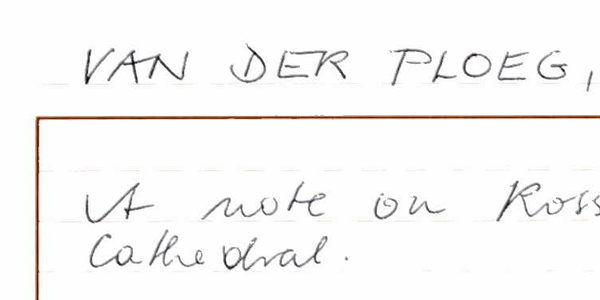 VAN DER PLOEG,
A note on Ross
Cathedral.